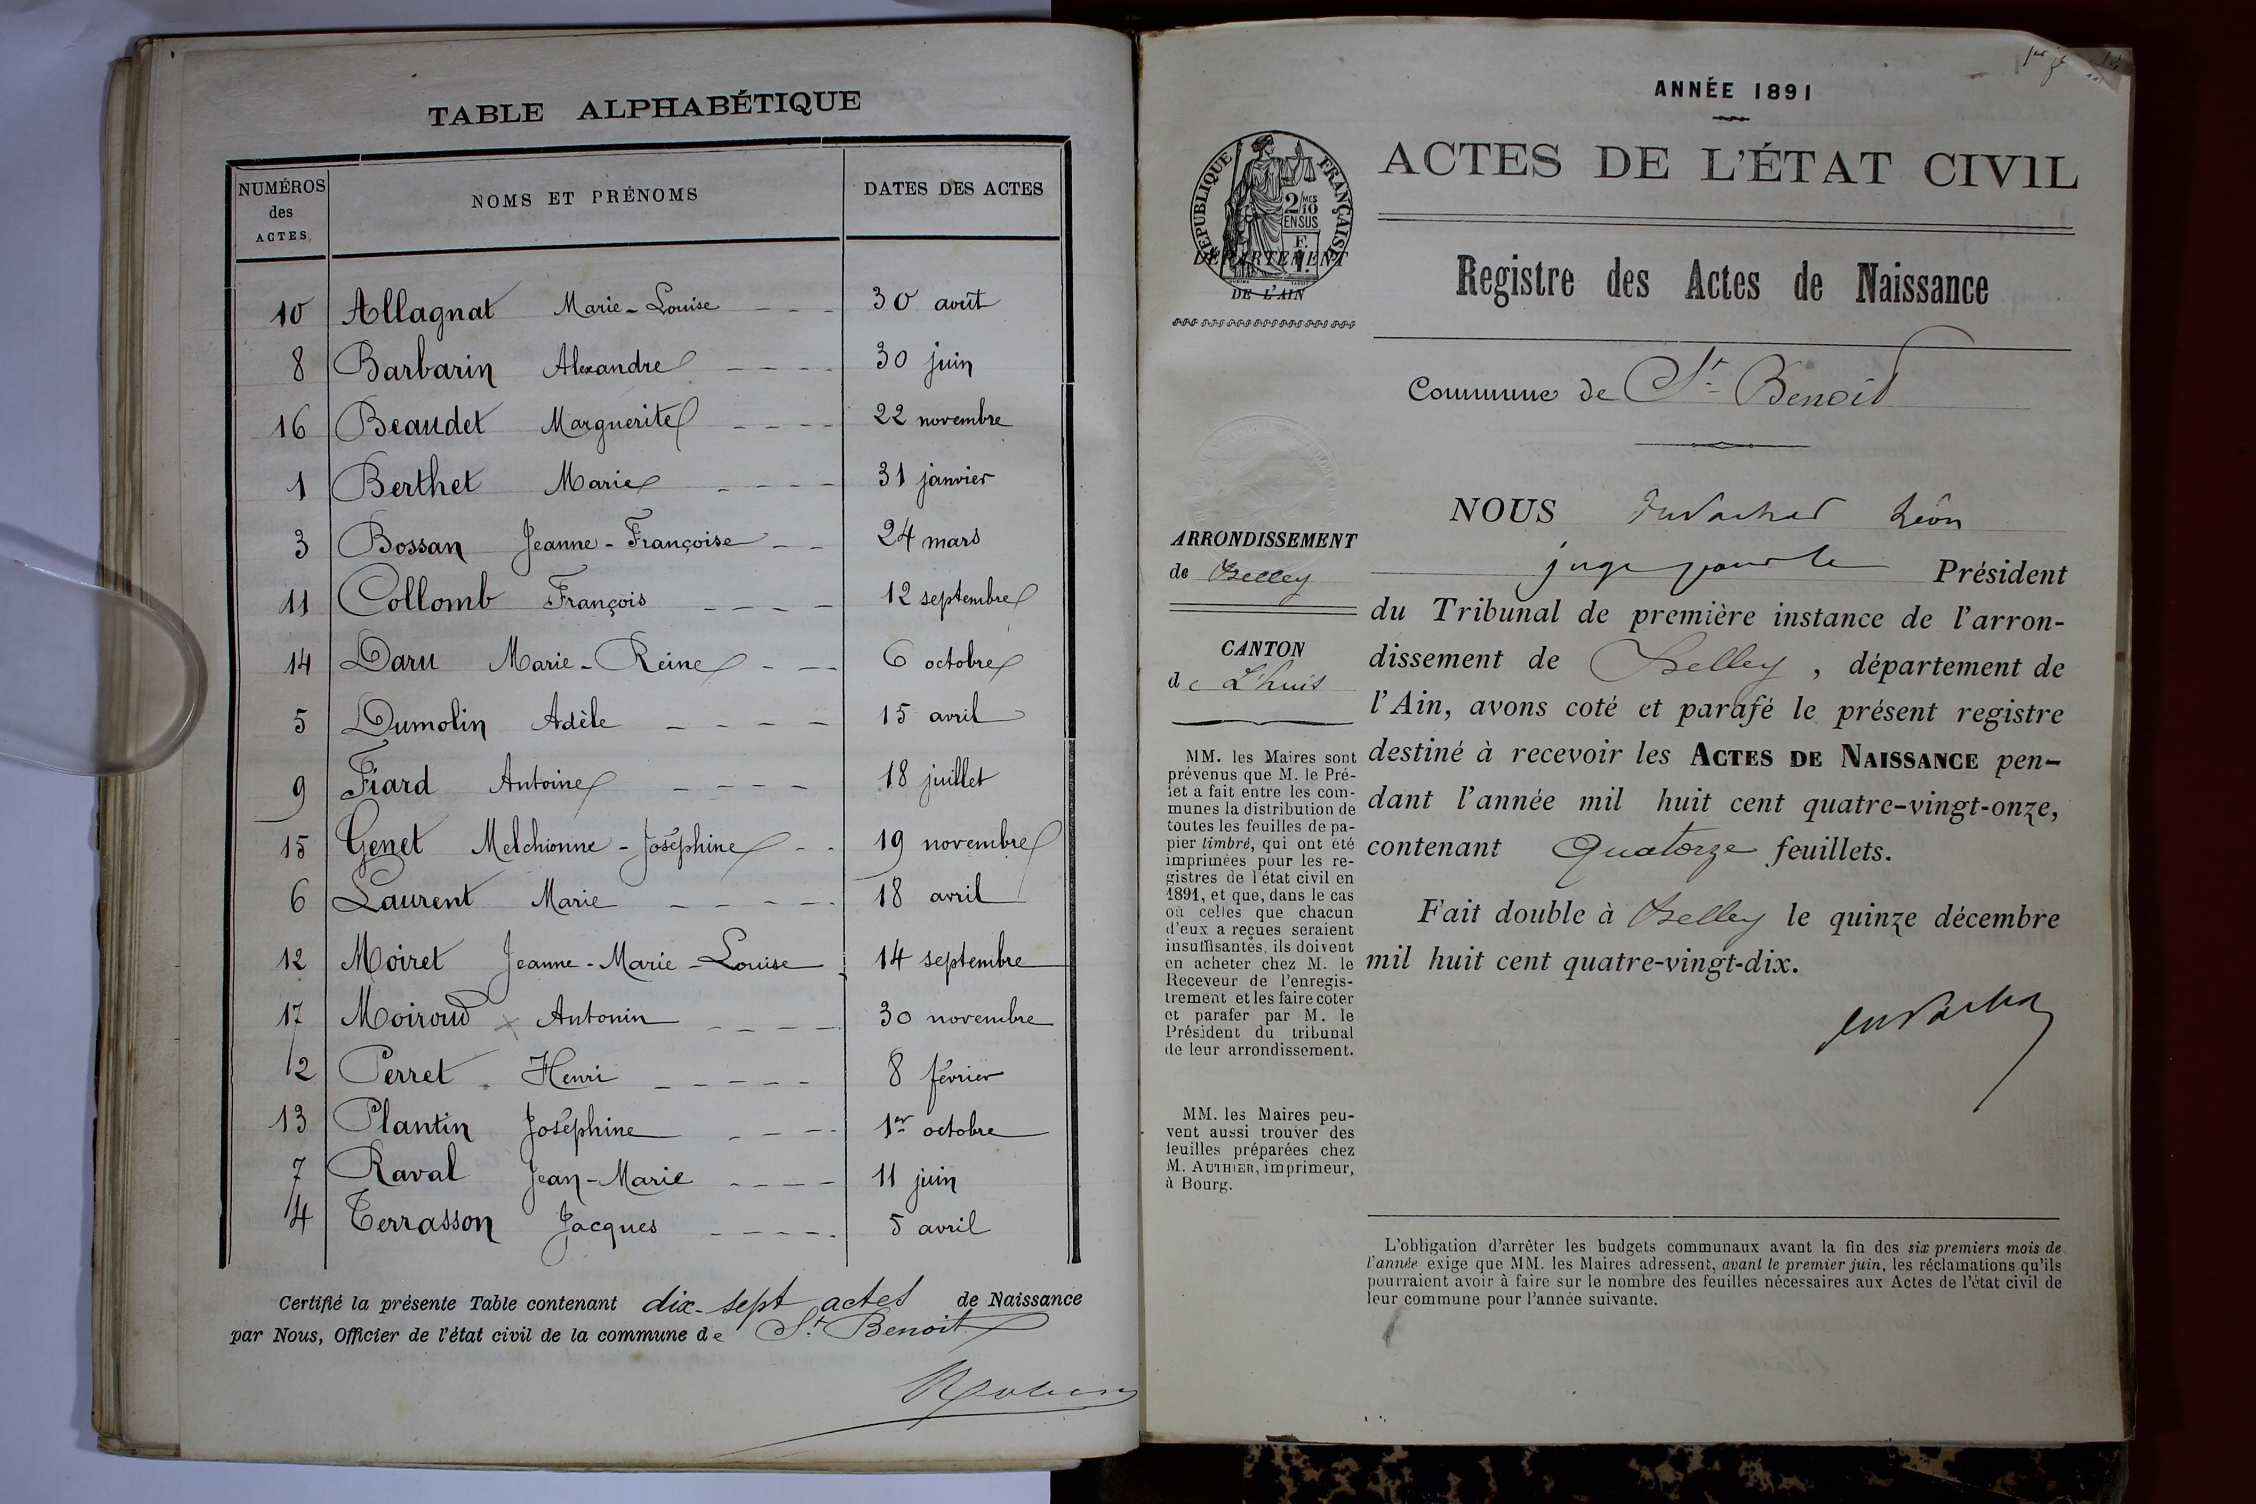 TABLE ALPHABÉTIQUE
NUMÉROS des ACTES
NOMS ET PRÉNOMS
DATES DES ACTES
10 Allagnat Marie-Louise 30 août
8 Barbarin Alexandre 30 juin
16 Beaudet Marguerite 22 novembre
1 Berthet Marie 31 janvier
3 Bossan Jeanne-Françoise 24 mars
11 Collomb François 12 septembre
14 Daru Marie-Reine 6 octobre
5 Dumolin Adèle 15 avril
9 Fiard Antoine 18 juillet
15 Genet Melchionne-Joséphine 19 novembre
6 Laurent Marie 18 avril
12 Moiret Jeanne-Marie-Louise 14 septembre
17 Moiroud Antonin 30 novembre
2 Perret Henri 8 février
13 Plantin Joséphine 1er octobre
7 Raval Jean-Marie 11 juin
4 Terrasson Jacques 5 avril
Certifié la présente Table contenant dix-sept actes de Naissance
par Nous, Officier de l'état civil de la commune de St Benoit
ANNÉE 1891
ACTES DE L'ÉTAT CIVIL
RÉPUBLIQUE FRANÇAISE
2/10 MES
EN SUS
DÉPARTEMENT
DE L'AIN
Registre des Actes de Naissance
Commune de St Benoit
ARRONDISSEMENT
de Belley
CANTON
de L'huis
MM. les Maires sont
prévenus que M. le Pré-
fet a fait entre les com-
munes la distribution de
toutes les feuilles de pa-
pier timbré, qui ont été
imprimées pour les re-
gistres de l'état civil en
1891, et que, dans le cas
où celles que chacun
d'eux a reçues seraient
insuffisantes, ils doivent
en acheter chez M. le
Receveur de l'enregis-
trement et les faire coter
et parafer par M. le
Président du tribunal
de leur arrondissement.
MM. les Maires peu-
vent aussi trouver des
feuilles préparées chez
M. AUTHIER, imprimeur,
à Bourg.
NOUS Léon
juge pour le Président
du Tribunal de première instance de l'arron-
dissement de Belley, département de
l'Ain, avons coté et parafé le présent registre
destiné à recevoir les ACTES DE NAISSANCE pen-
dant l'année mil huit cent quatre-vingt-onze,
contenant Quatorze feuillets.
Fait double à Belley le quinze décembre
mil huit cent quatre-vingt-dix.
L'obligation d'arrêter les budgets communaux avant la fin des six premiers mois de
l'année exige que MM. les Maires adressent, avant le premier juin, les réclamations qu'ils
pourraient avoir à faire sur le nombre des feuilles nécessaires aux Actes de l'état civil de
leur commune pour l'année suivante.